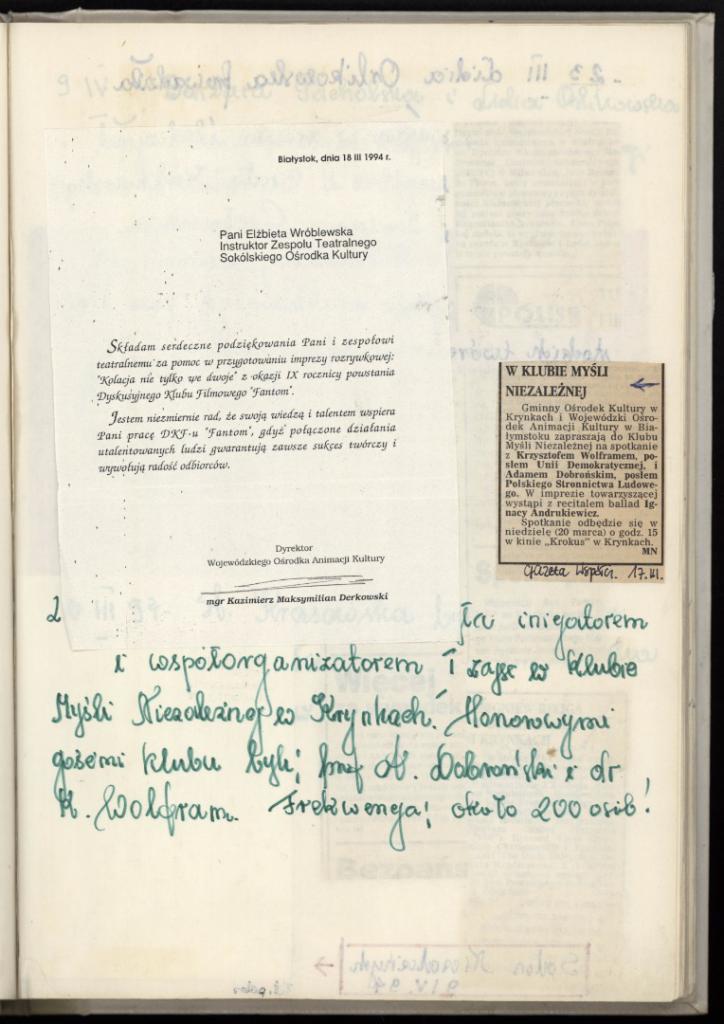 Białystok, dnia 18 III 1994 r.
Pani Elżbieta Wróblewska
Instruktor Zespołu Teatralnego
Sokólskiego Ośrodka Kultury
Składam serdeczne podziękowania Pani i zespołowi
teatralnemu za pomoc w przygotowaniu imprezy rozrywkowej:
"Kolacja nie tylko we dwoje" z okazji IX rocznicy powstania
Dyskusyjnego Klubu Filmowego "Fantom".
Jestem niezmiernie rad, że swoją wiedzą i talentem wspiera
Pani pracę DKF-u "Fantom", gdyż połączone działania
utalentowanych ludzi gwarantują zawsze sukces twórczy i
wywołują radość odbiorców.
Dyrektor
Wojewódzkiego Ośrodka Animacji Kultury
mgr Kazimierz Maksymilian Derkowski
W KLUBIE MYŚLI
NIEZALEŻNEJ
Gminny Ośrodek Kultury w
Krynkach i Wojewódzki Ośro-
dek Animacji Kultury w Bia-
łymstoku zapraszają do Klubu
Myśli Niezależnej na spotkanie
z Krzysztofem Wolframem, po-
słem Unii Demokratycznej, i
Adamem Dobrońskim, posłem
Polskiego Stronnictwa Ludowe-
go. W imprezie towarzyszącej
wystąpi z recitalem ballad Ig-
nacy Andrukiewicz.
Spotkanie odbędzie się w
niedzielę (20 marca) o godz. 15
w kinie „Krokus" w Krynkach.
MN
Gazeta Współcz. 17.III.
inicjatorem
i współorganizatorem I zajęć w Klubie
Myśli Niezależnej w Krynkach. Honorowymi
gośćmi klubu byli; prof A. Dobroński i dr
K. Wolfram. Frekwencja; około 200 osób!